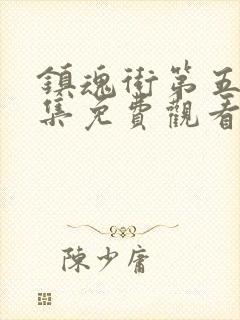 鎮魂街第五
集免費觀看
陳少庸